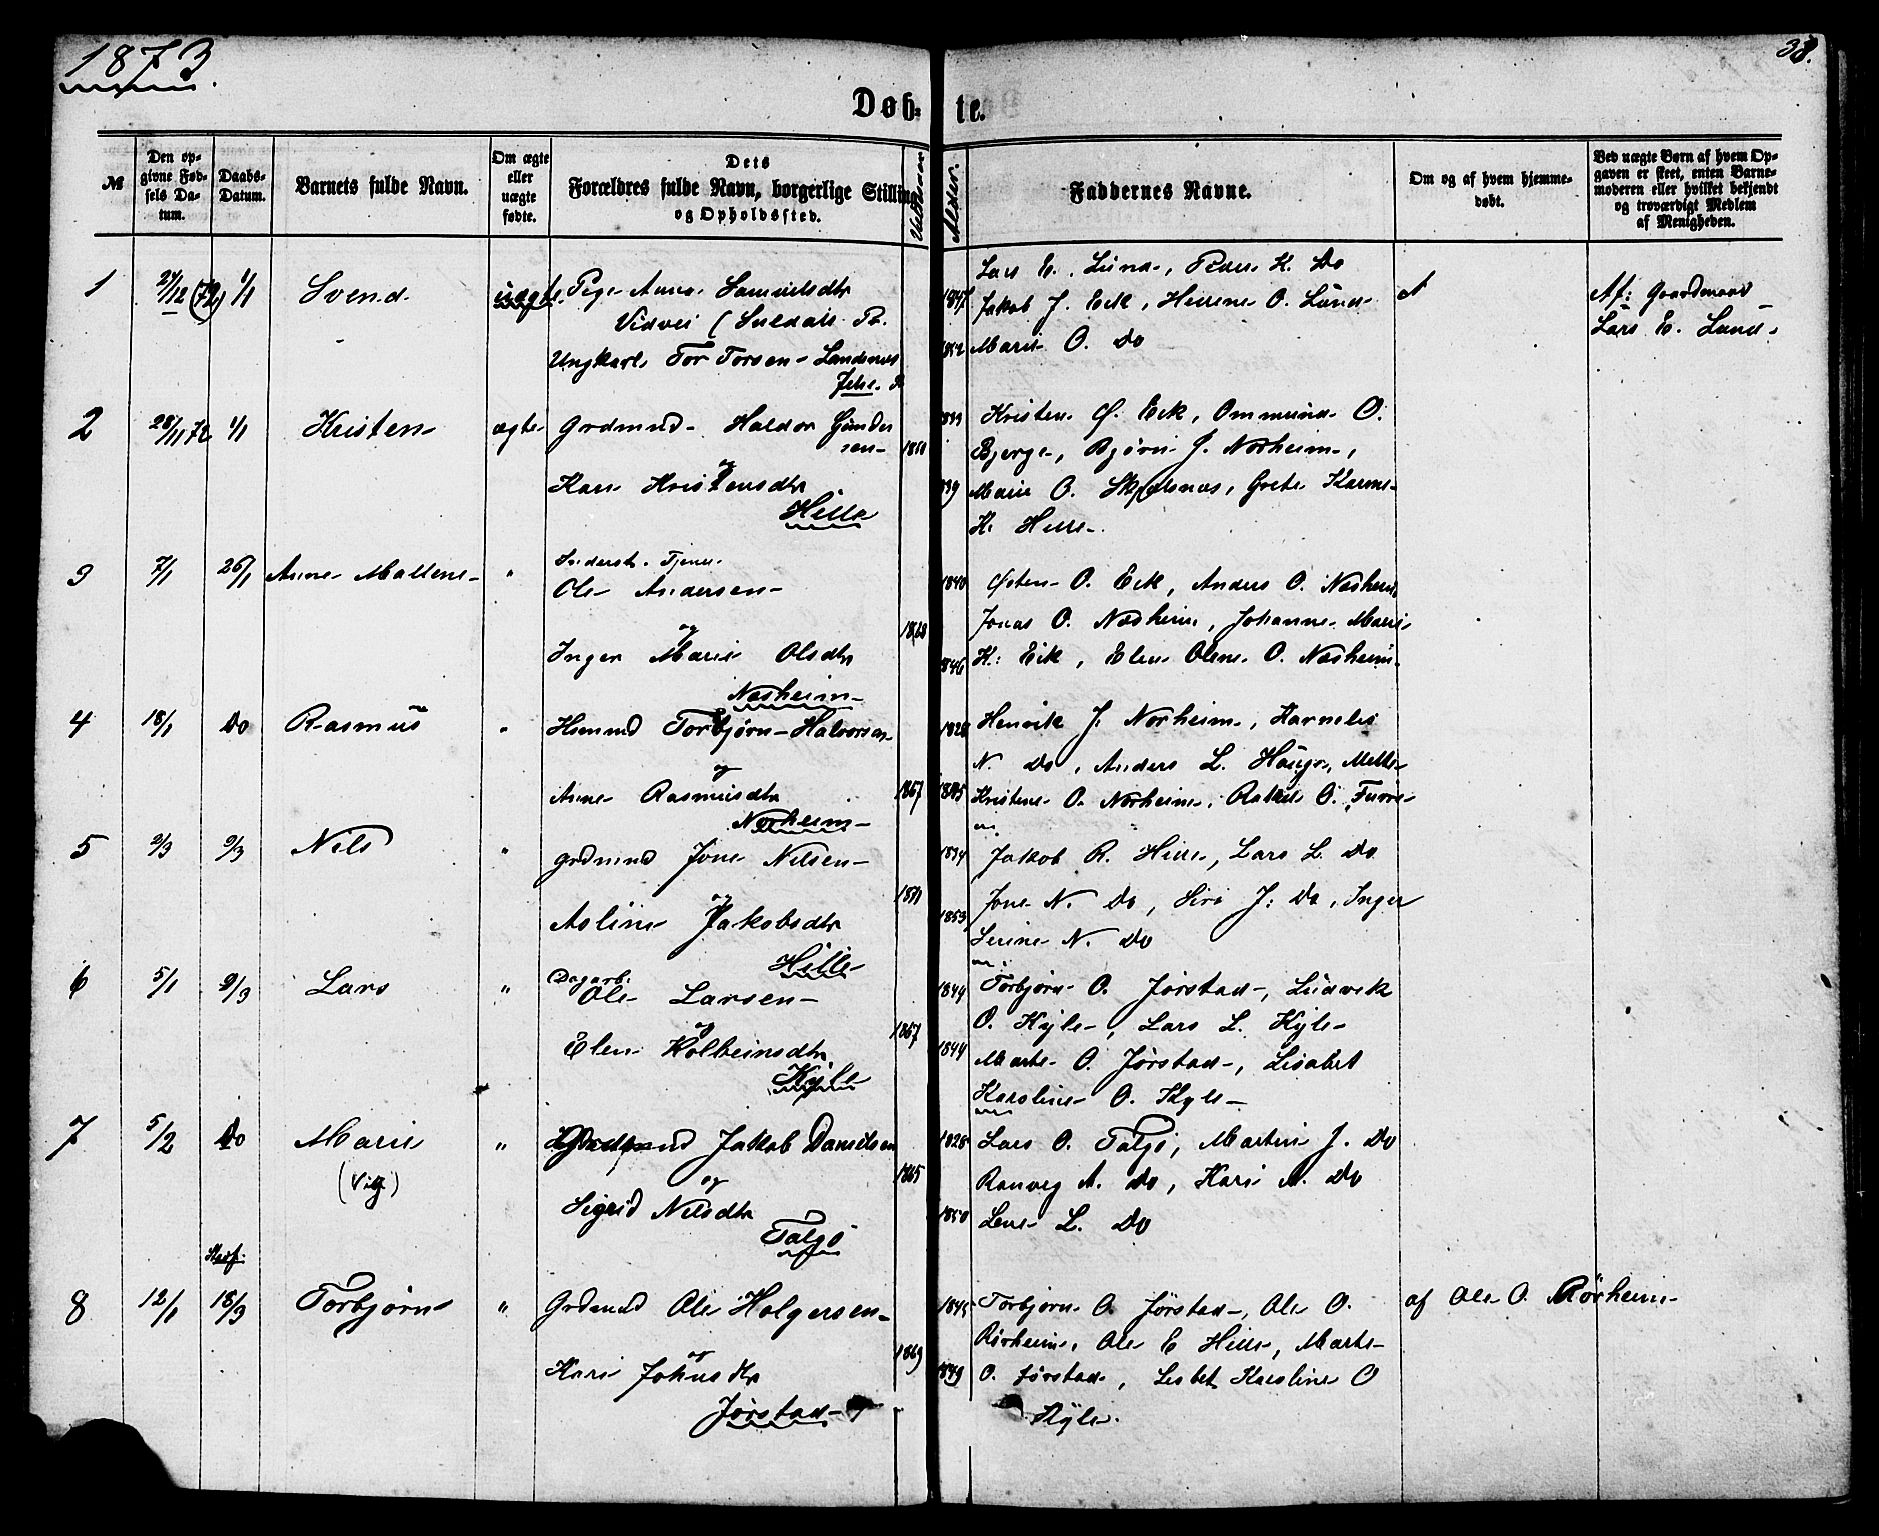 1873.
38.
Døbte.
№
Den opgivne Fødsels Datum.
Daabs-Datum.
Barnets fulde Navn.
Om ægte eller uægte fødte.
Dets Forældres fulde Navn, borgerlige Stilling og Opholdssted.
Alder.
Faddernes Navne.
Om og af hvem hjemmedøbt.
Ved uægte Børn af hvem Opgaven er skeet, enten Barnemoderen eller hvilket bekjendt og troværdigt Medlem af Menigheden.
1 27/12 (72) 1/1 Svend uægte Pige Anna Samuelsdtr
Vidvei (Suledals Pr.
Ungkarl Tor Torsen Landsnes
Jelse Pr
1847
1852
Lars E. Lund, Peder K. Do
Jakob J. Eek, Helene O. Lund
Mari O. Do
Af: Gaardmand
Lars E. Lund
2 28/11 72 1/1 Kristen ægte Grdmnd Haldor Gundersen
og
Kari Kristensdtr
Hille
1839
Kristen Ø. Eek, Ommund O.
Bjerge, Bjørn J. Norheim,
Marie O. Skjelsnæs, Grete Karine
K. Hille
3 7/1 26/1 Anne Mallene " Inderst. Tjener
Ole Andersen
og
Inger Marie Olsdtr
Næsheim
1868
1840
1846
Østen O. Eek, Anders O. Næsheim
Jonas O. Næsheim, Johanne Marie
K. Eik, Elen Olene O. Næsheim
4 18/1 Do Rasmus " Husmnd Torbjørn Halvorsen
og
Anne Rasmusdtr
Norheim
1867
1828
1845
Henrik J. Norheim, Karnelis
N. Do, Anders L. Hauge, Mette
Kristine O. Norheim, Rakel O. Furre
5 2/3 9/3 Nils " grdmnd Jone Nilsen
og
Asline Jakobsdtr
Hille
1871
1834
1853
Jakob R. Hille, Lars L. Do
Jone N. Do, Siri J: Do, Inger
Serine N. Do
6 5/1 9/3 Lars " Dagarb.
Ole Larsen
og
Elen Kolbeinsdtr
Kyle
1867
1844
1844
Torbjørn O. Jørstad, Ludvik
O. Kyle, Lars L. Kyle
Marte O. Jørstad, Lisabet
Karoline O. Kyle
7 5/2 Do Marie " Jakob Danielsen
(Vig)
og
Sigrid Nilsdtr
Talgø
1865
1828
1850
Lars O. Talgø, Martin J. Do
Ranveg A. Do, Kari A. Do
Lene L. Do
8 12/1 18/3 Torbjørn " Grdmnd Ole Holgersen
og
Kari Johnsdtr
Jørstad
1869
1845
1849
Torbjørn O. Jørstad, Ole O.
Rørheim, Ole E Hille, Marte
O. Jørstad, Lisbet Karoline O
Kyle.
af Ole O. Rørheim